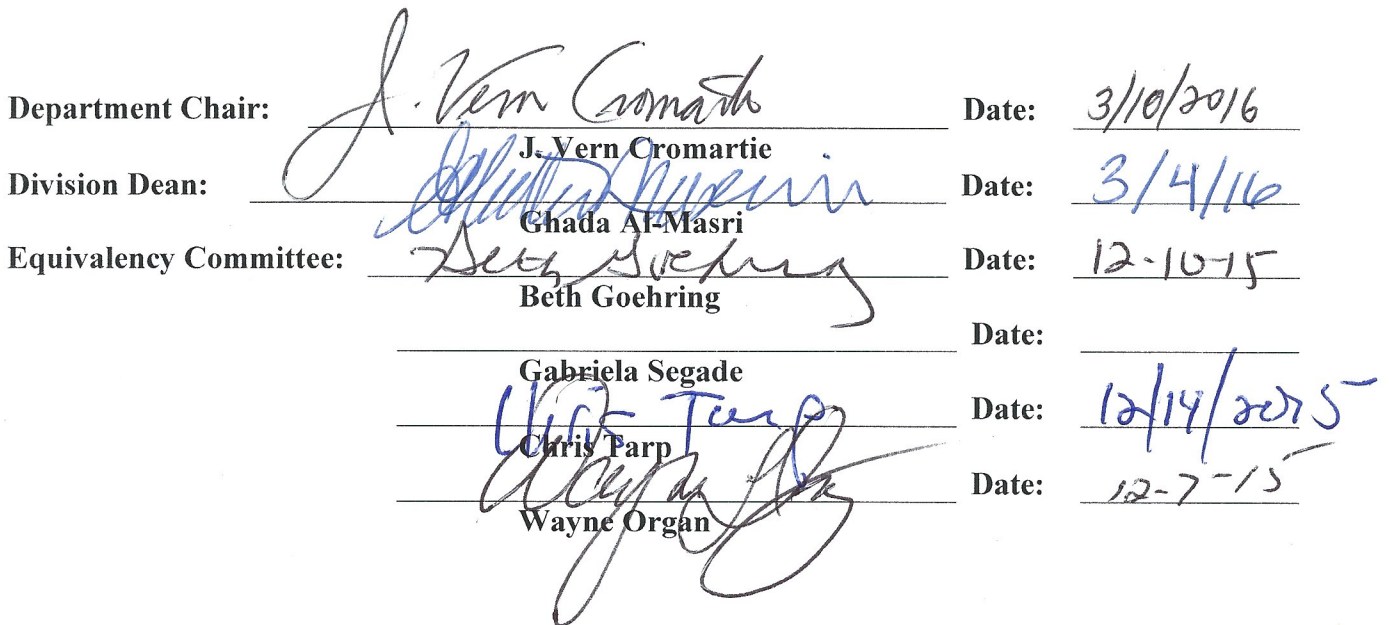 Department Chair: J. Vern Cromartie Date: 3/10/2016
J. Vern Cromartie
Division Dean: Date: 3/4/16
Ghada Al-Masri
Equivalency Committee: Beth Goehring Date: 12-10-15
Beth Goehring
Date:
Gabriela Segade
Chris Tarp Date: 12/14/2015
Chris Tarp
Wayne Organ Date: 12-7-15
Wayne Organ